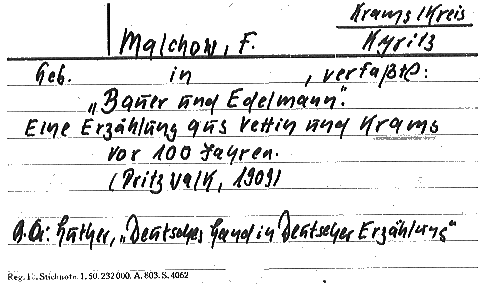 Krams/Kreis
Malchow, F. Kyritz
Geb. in , verfaßte:
„Bauer und Edelmann".
Eine Erzählung aus Vettin und Krams
vor 100 Jahren.
(Pritzwalk, 1909)
Luther, „Deutsches Land in Deutscher Erzählung"
Reg. K. Stichnote. 1. 50. 232000. A. 803. S. 4062